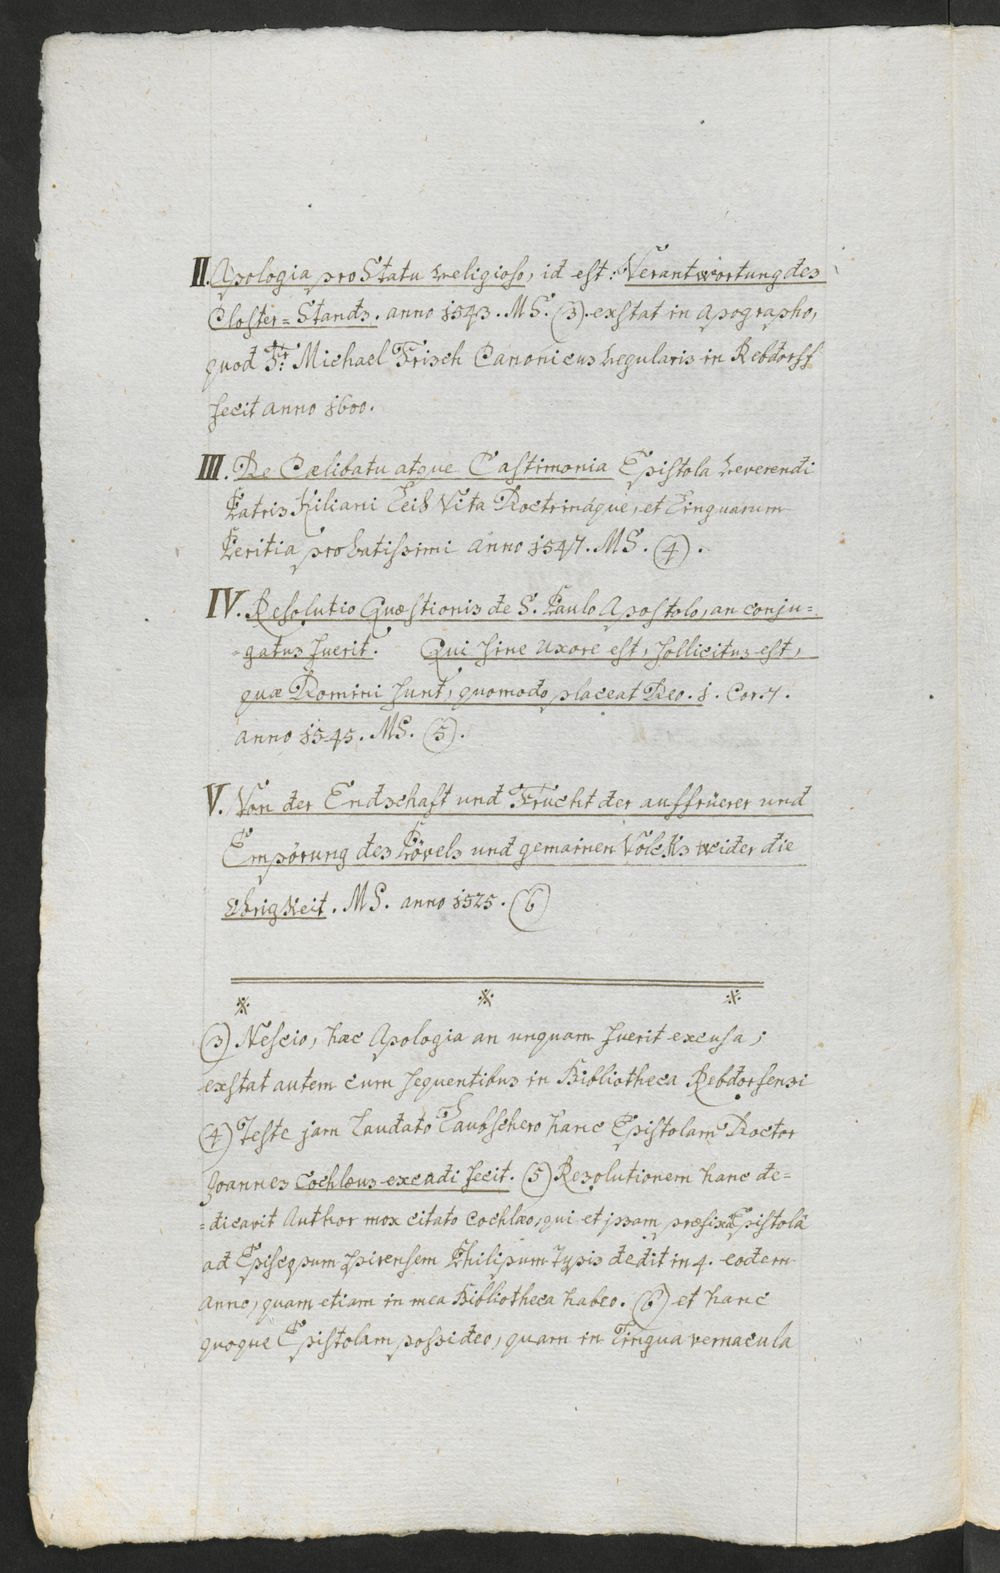 II. Apologia pro Statu religioso, id est: Verantwortung des
Closter=Stands. anno 1543. MS. (3). exstat in Apographo,
quod Fr: Michael Frisch Canonicus regularis in Rebdorff
fecit anno 1600.
III. De Cælibatu atque Castimonia Epistola reverendi
Patris Kiliani Leib Vita Doctrináque, et Linguarum
Peritia probatissimi anno 1547. MS. (4).
IV. Resolutio Quæstionis de S. Paulo Apostolo, an conju=
=gatus fuerit. Qui sine uxore est, sollicitus est,
quæ Domini sunt, quomodo placeat Deo. 1. Cor. 7.
anno 1545. MS. (5).
V. Von der Endschaft und Frucht der auffrüerer und
Empörung des Pövels und gemainen Volcks wider die
Obrigkeit. MS. anno 1525. (6)
(3) Nescio, hæc Apologia an unquam fuerit excusa;
exstat autem cum sequentibus in Bibliotheca Rebdorfensi
(4) Teste jam laudato Taubschero hanc Epistolam Doctor
Joannes Cochlæus excudi fecit. (5) Resolutionem hanc de=
=dicavit Author mox citato Cochlæo, qui et ipsam præfixâ Epistolâ
ad Episcopum Spirensem Philipum Typis dedit in 4. eodem
anno, quam etiam in mea Bibliotheca habeo. (6) et hanc
quoque Epistolam possideo, quam in Lingua vernacula